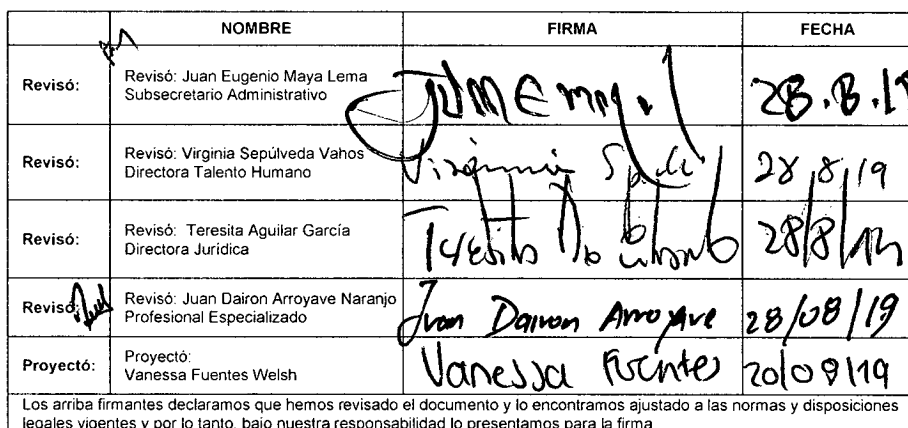 NOMBRE FIRMA FECHA
Revisó: Revisó: Juan Eugenio Maya Lema
Subsecretario Administrativo
28.8.19
Revisó: Revisó: Virginia Sepúlveda Vahos
Directora Talento Humano
Virginia 28/8/19
Revisó: Revisó: Teresita Aguilar García
Directora Jurídica
Teresita 28/8/19
Revisó: Revisó: Juan Dairon Arroyave Naranjo
Profesional Especializado
Juan Dairon Arroyave 28/08/19
Proyectó: Proyectó:
Vanessa Fuentes Welsh
Vanessa Fuentes 20/08/19
Los arriba firmantes declaramos que hemos revisado el documento y lo encontramos ajustado a las normas y disposiciones
legales vigentes y por lo tanto, bajo nuestra responsabilidad lo presentamos para la firma